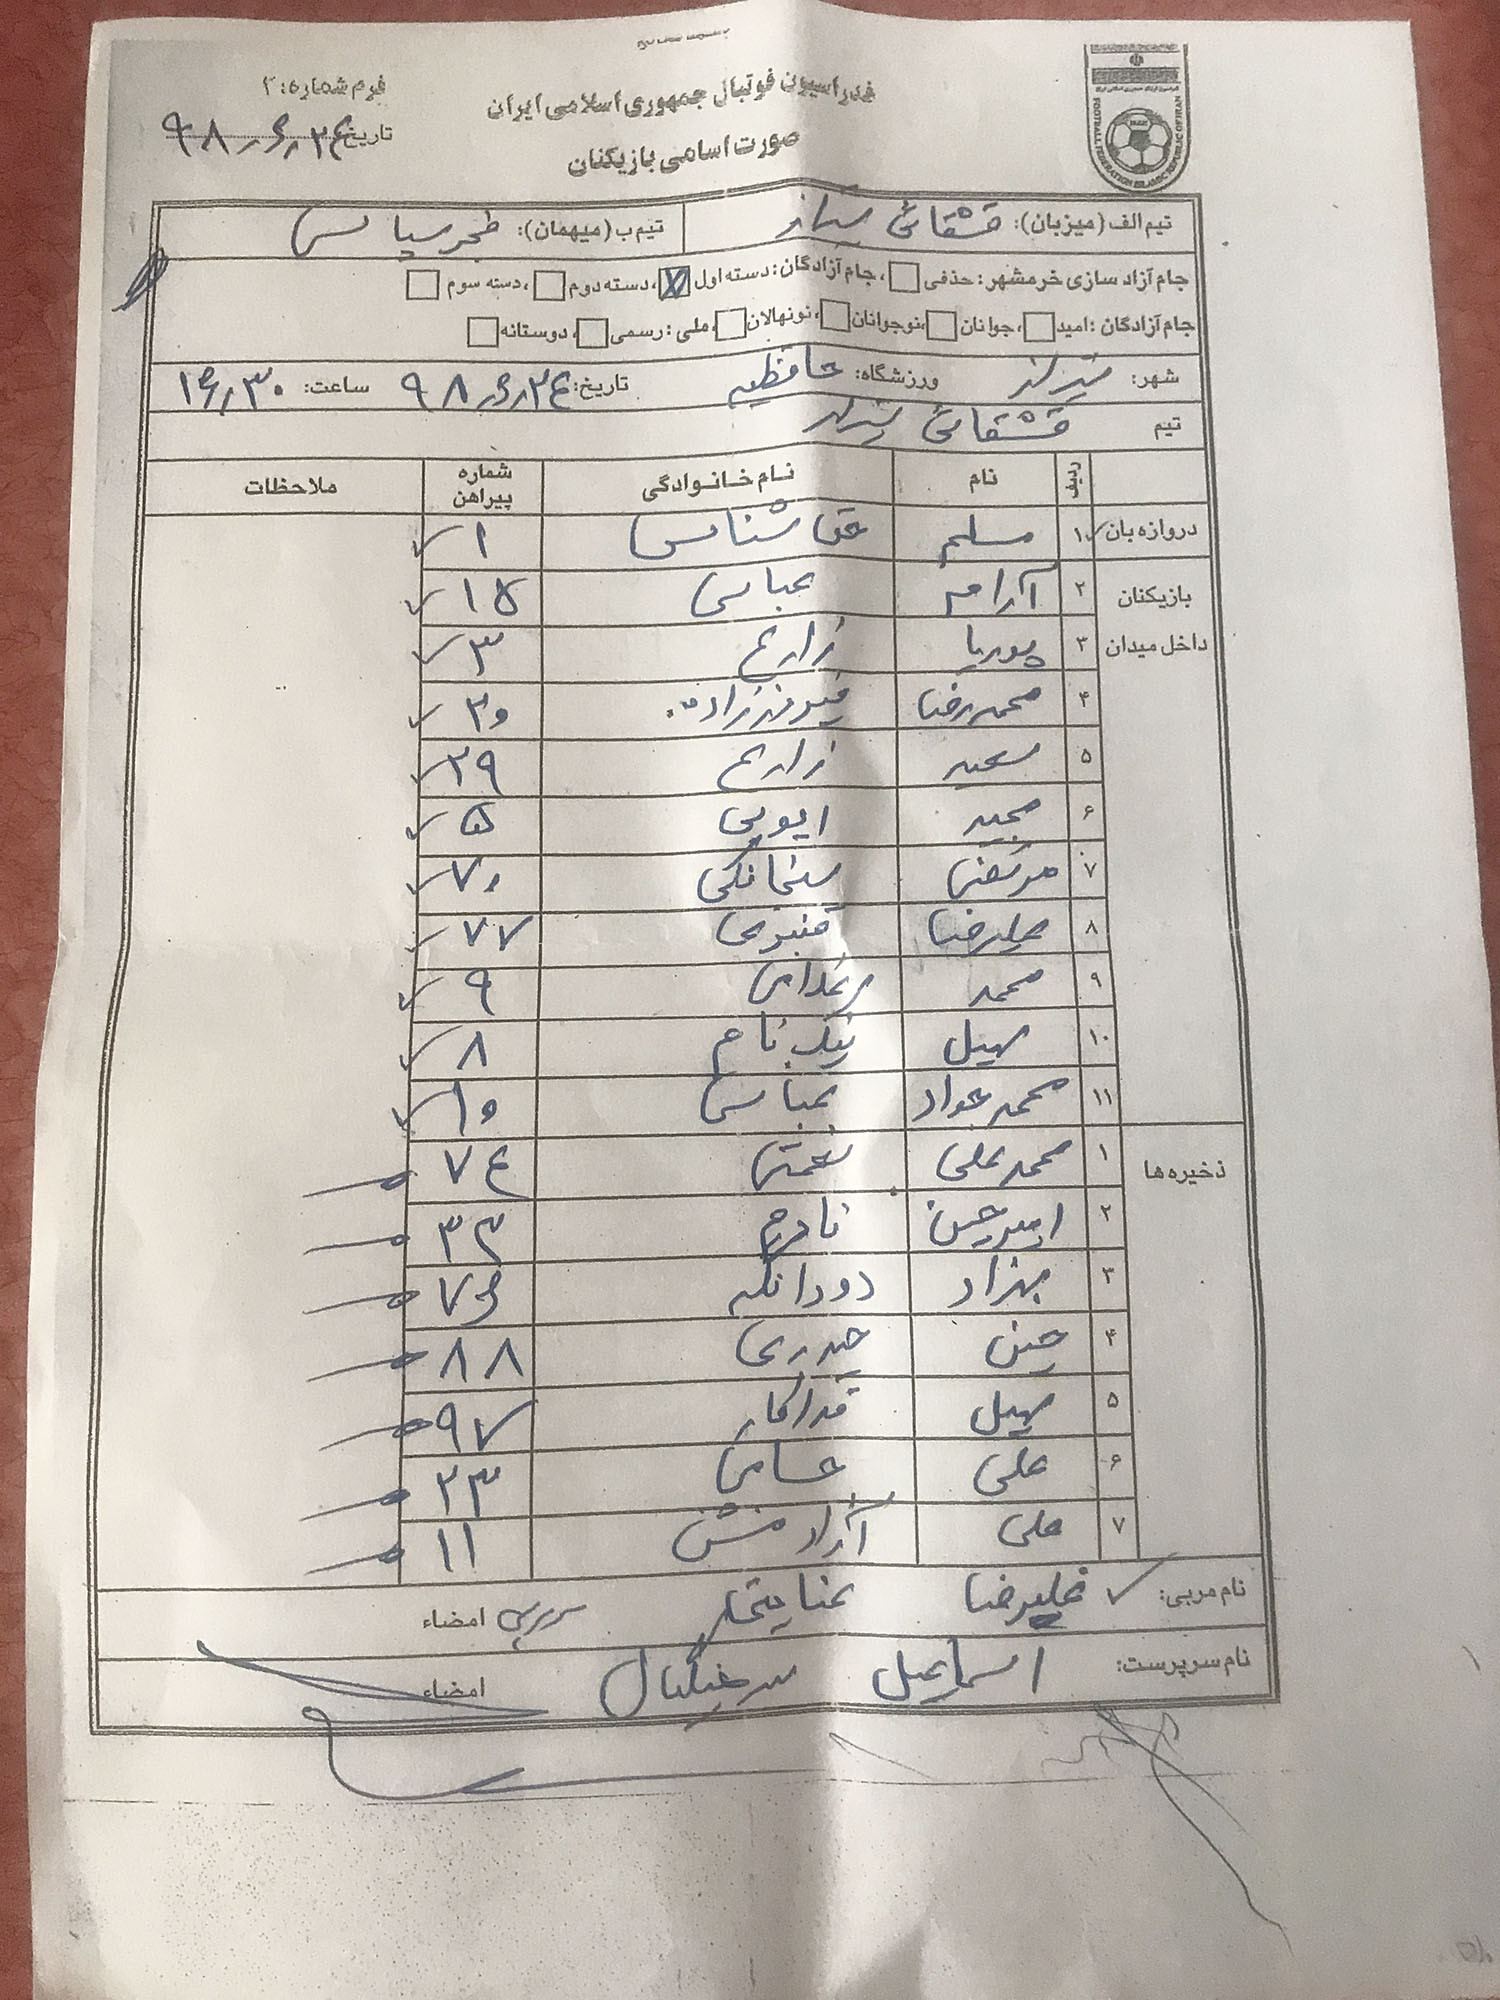 فدراسیون فوتبال جمهوری اسلامی ایران
صورت اسامی بازیکنان
فرم شماره: ۲
تاریخ ۹۸٫۶٫۲۴
FOOTBALL FEDERATION ISLAMIC REPUBLIC OF IRAN
تیم الف (میزبان): قشقائی شیراز تیم ب (میهمان): فجر سپاسی
جام آزاد سازی خرمشهر: حذفی ، جام آزادگان: دسته اول ، دسته دوم ، دسته سوم
جام آزادگان: امید ، جوانان ، نوجوانان ، نونهالان ، ملی: رسمی ، دوستانه
شهر: شیراز ورزشگاه: حافظیه تاریخ: ۹۸٫۶٫۲۴ ساعت: ۱۶٫۳۰
تیم قشقائی شیراز
ردیف نام نام خانوادگی شماره پیراهن ملاحظات
دروازه بان ۱ مسلم حق شناس ۱
بازیکنان ۲ آرام عباسی ۱۵
داخل میدان ۳ پوریا زارع ۳
۴ محمدرضا ۲۰
۵ سعید زارع ۲۹
۶ مجید ایوبی ۵
۷ مرتضی ۷۰
۸ علیرضا قنبری ۷۷
۹ محمد ۹
۱۰ سهیل نیک نام ۸
۱۱ محمدجواد عباسی ۱۰
ذخیره ها ۱ محمدعلی نعمتی ۷۴
۲ امیرحسن ۳۳
۳ بهزاد دودانگه ۷۶
۴ حسن حیدری ۸۸
۵ سهیل فداکار ۹۷
۶ علی ۲۳
۷ علی آزادمنش ۱۱
نام مربی: علیرضا امضاء
نام سرپرست: اسماعیل امضاء